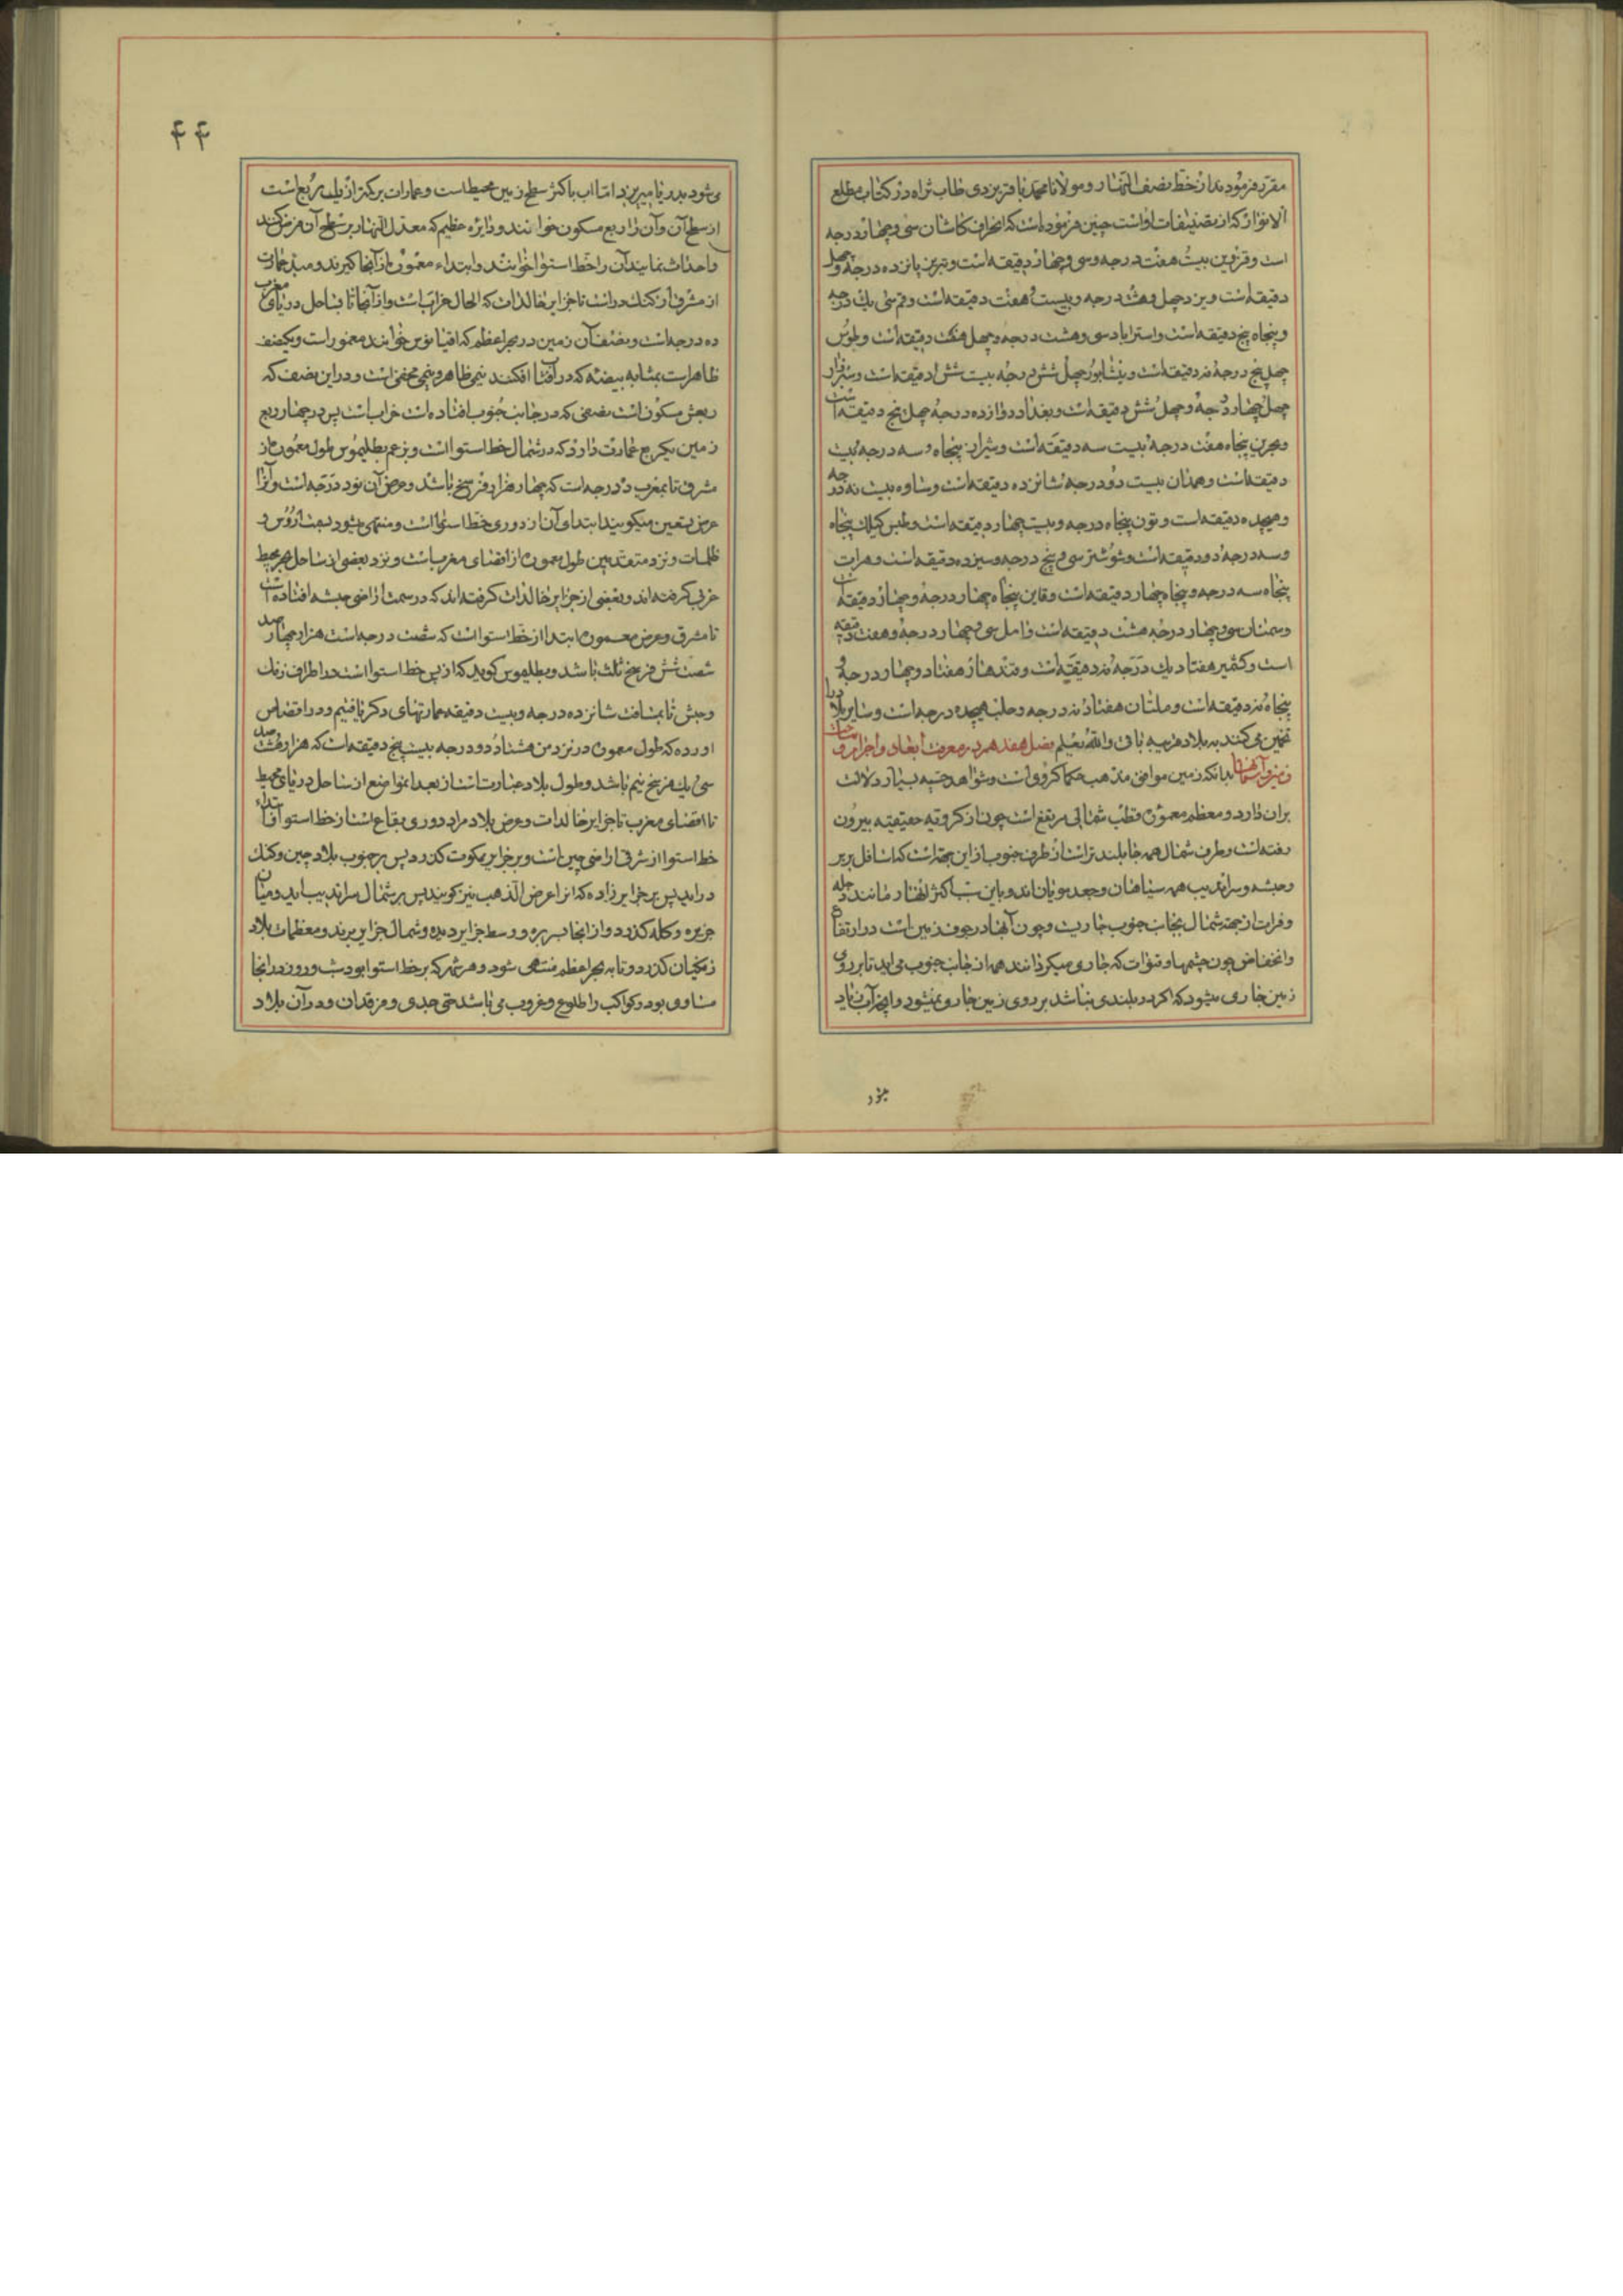 مقرر فرموده‌اند از خط نصف النهار و مولانا محمد باقر یزدی طاب ثراه در کتاب مطلع
الانوار که از تصنیفات اوست چنین فرموده است که انحراف کاشان سی و چهار درجه
است و قزوین بیست هفت درجه و سی و چهار دقیقه است و تبریز پانزده درجه و چهل
دقیقه است و یزد چهل و هشت درجه و بیست و هفت دقیقه است و قم سی یک درجه
و پنجاه پنج دقیقه است و استراباد سی و هشت درجه و چهل هشت دقیقه است و طوس
چهل پنج درجه نه دقیقه است و نیشابور چهل شش درجه بیست شش دقیقه است و سبزوار
چهل چهار درجه و چهل شش دقیقه است و بغداد دوازده درجه چهل پنج دقیقه است
و بحرین پنجاه هفت درجه بیست سه دقیقه است و شیراز پنجاه و سه درجه بیست
دقیقه است و همدان بیست دو درجه شانزده دقیقه است و ساوه بیست نه درجه
و هیجده دقیقه است و تون پنجاه درجه و بیست چهار دقیقه است و طبس کیلک پنجاه
و سه درجه دو دقیقه است و شوشتر سی و پنج درجه و سیزده دقیقه است و هرات
پنجاه سه درجه و پنجاه چهار دقیقه است و قاین پنجاه چهار درجه و چهار دقیقه است
و سمنان سی و چهار درجه هشت دقیقه است و امل سی و چهار درجه و هفت دقیقه
است و کشمیر هفتاد یک درجه نه دقیقه است و قندهار هفتاد و چهار درجه و
پنجاه نه دقیقه است و ملتان هفتاد نه درجه و حلب هیجده درجه است و سایر بلاد را
تخمین می کنند به بلاد قریبه باقی والله یعلم فصل هفدهم در معرفت ابعاد و اجرام و مساحت
زمین و آسمانها بدانکه زمین موافق مذهب حکما کروی است و شواهد حسیه بسیار دلالت
بران دارد و معظم معموره قطب شمالی مرتفع است چون از کرویه حقیقیه بیرون
رفته است و طرف شمال همه جا بلند تر است از طرف جنوب از این جهت است که اسافل بربر
و حبشه و سراندیب همه سیاهان و جعد مویان اند و باین سبب اکثر انهار مانند دجله
و فرات از جهة شمال بجانب جنوب جاریست و چون آنها در جوف زمین است در ارتفاع
و انخفاض چون چشمها و قنوات که جاری میکردانند همه از جانب جنوب می اید تا بر روی
زمین جاری میشود که اکر در بلندی نباشد بر روی زمین جاری نمیشود و اخر آب زیاد
میشود
۴۴
می شود بدریا میریزد اما اب باکثر سطح زمین محیط است و عمارات بر کمتر از یک ربع است
از سطح آن و آن را ربع مسکون خوانند و دایره عظیم که معدل النهار بر سطح آن فرض کنند
و احداث نمایند آن را خط استوا خوانند و ابتداء معموره از آنجا کیرند و مبدء عمارت
از مشرق از کنک دز است تا جزایر خالدات که الحال خراب است و از آنجا تا بساحل دریای مغرب
ده درجه است و نصف آن زمین در بحر اعظم که اقیانوس خوانند مغمور است و یک نصف
ظاهر است بمثابه بیضه که در آب افکنند نیمی ظاهر و نیمی مخفی است و در این نصف که
ربعش مسکون است نصفی که در جانب جنوب افتاده است خراب است پس در چهار ربع
زمین یکربع عمارت دارد که در شمال خط استوا است و بزعم بطلیموس طول معموره از
مشرق تا بمغرب درجه است که چهار هزار فرسخ باشد و عرض آن نود درجه است و آنرا
عرض تسعین میکویند ابتدای آن از دوری خط استوا است و منتهی میشود بهشت روس و
ظلمات و نزد متقدمین طول معموره از اقصای مغرب است و نزد بعضی از ساحل بحر محیط
غربی کرفته اند و بعضی از جزایر خالدات کرفته اند که در سمت اراضی حبشه افتاده است
تا مشرق و عرض معموره ابتدا از خط استوا است که شصت درجه است هزار چهار صد
شصت شش فرسخ ثلث باشد و بطلیموس کوید که از پس خط استوا است در اطراف زنک
و حبش تا بمسافت شانزده درجه و بیست دقیقه عمارتهای دکر یافتیم و در اقصاس
اورده که طول معموره در نزد من هشتاد دو درجه بیست پنج دقیقه است که هزار هشت صد
سی یک فرسخ نیم باشد و طول بلاد عبارتست از بعد انمواضع از ساحل دریای محیط
تا اقصای مغرب تا جزایر خالدات و عرض بلاد مراد دوری بقاع است از خط استوا و ابتداء
خط استوا از شرقی اراضی چین است و بر جزایر یکوت کذرد پس بر جنوب بلاد چین و کنک
دراید پس بر جزایر زاده که انرا عرض الذهب نیز کویند پس بر شمال سراندیب اید و میان
جزیره و کله کذرد و از انجا سریره و وسط جزایر دیده و شمال جزایر برند و معظمات بلاد
زنکیان کذرد و تا به بحر اعظم منتهی شود و هر شهر که بر خط استوا بود شب و روز در انجا
مساوی بود و کواکب را طلوع و غروب می باشد حتی جدی و فرقدان و در آن بلاد